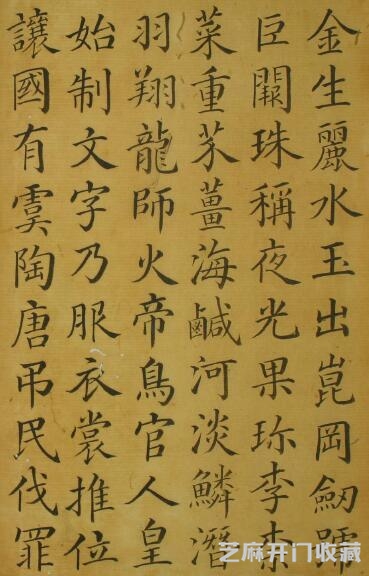 金生麗水玉出崑岡劒號
巨闕珠稱夜光果珎李柰
菜重芥薑海鹹河淡鱗潛
羽翔龍師火帝鳥官人皇
始制文字乃服衣裳推位
讓國有虞陶唐吊民伐罪
芝麻开门收藏